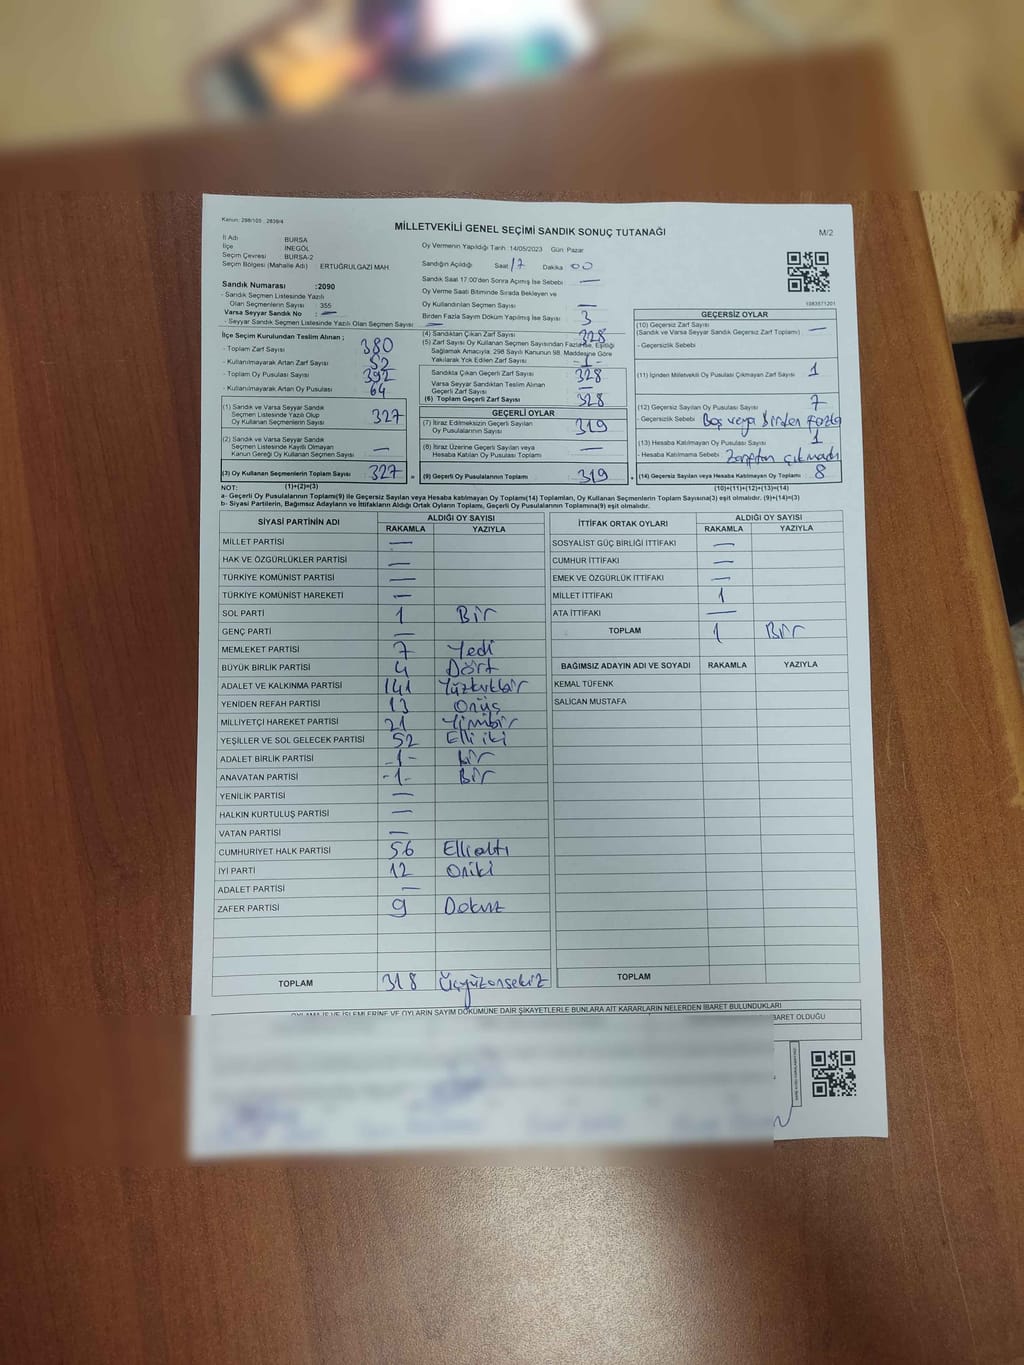 Kanun: 298/105 , 2839/4
MİLLETVEKİLİ GENEL SEÇİMİ SANDIK SONUÇ TUTANAĞI
M/2
İl Adı : BURSA
İlçe : İNEGÖL
Seçim Çevresi : BURSA-2
Seçim Bölgesi (Mahalle Adı) : ERTUĞRULGAZİ MAH.
Oy Vermenin Yapıldığı Tarih :14/05/2023 Gün: Pazar
Sandığın Açıldığı Saat 17 Dakika 00
Sandık Saat 17:00'den Sonra Açımış İse Sebebi : —
Oy Verme Saati Bitiminde Sırada Bekleyen ve
Oy Kullandırılan Seçmen Sayısı : —
Birden Fazla Sayım Döküm Yapılmış İse Sayısı : 3
1083571201
Sandık Numarası :2090
- Sandık Seçmen Listesinde Yazılı
Olan Seçmenlerin Sayısı : 355
Varsa Seyyar Sandık No : —
- Seyyar Sandık Seçmen Listesinde Yazılı Olan Seçmen Sayısı : —
İlçe Seçim Kurulundan Teslim Alınan ;
- Toplam Zarf Sayısı : 380
- Kullanılmayarak Artan Zarf Sayısı : 52
- Toplam Oy Pusulası Sayısı : 392
- Kullanılmayarak Artan Oy Pusulası : 64
(1) Sandık ve Varsa Seyyar Sandık
Seçmen Listesinde Yazılı Olup
Oy Kullanan Seçmenlerin Sayısı : 327
(2) Sandık ve Varsa Seyyar Sandık
Seçmen Listesinde Kayıtlı Olmayan
Kanun Gereği Oy Kullanan Seçmen Sayısı : —
(3) Oy Kullanan Seçmenlerin Toplam Sayısı : 327
(4) Sandıktan Çıkan Zarf Sayısı : 328
(5) Zarf Sayısı Oy Kullanan Seçmen Sayısından Fazla İse, Eşitliği
Sağlamak Amacıyla; 298 Sayılı Kanunun 98. Maddesine Göre
Yakılarak Yok Edilen Zarf Sayısı : -1-
Sandıkta Çıkan Geçerli Zarf Sayısı : 328
Varsa Seyyar Sandıktan Teslim Alınan
Geçerli Zarf Sayısı : —
(6) Toplam Geçerli Zarf Sayısı : 328
GEÇERLİ OYLAR
(7) İtiraz Edilmeksizin Geçerli Sayılan
Oy Pusulalarının Sayısı : 319
(8) İtiraz Üzerine Geçerli Sayılan veya
Hesaba Katılan Oy Pusulası Toplamı : —
= (9) Geçerli Oy Pusulalarının Toplamı : 319
GEÇERSİZ OYLAR
(10) Geçersiz Zarf Sayısı : —
(Sandık ve Varsa Seyyar Sandık Geçersiz Zarf Toplamı)
- Geçersizlik Sebebi :
(11) İçinden Milletvekili Oy Pusulası Çıkmayan Zarf Sayısı : 1
(12) Geçersiz Sayılan Oy Pusulası Sayısı : 7
- Geçersizlik Sebebi : Boş veya birden fazla
(13) Hesaba Katılmayan Oy Pusulası Sayısı : 1
- Hesaba Katılmama Sebebi : Zarftan çıkmadı
+ (14) Geçersiz Sayılan veya Hesaba Katılmayan Oy Toplamı : 8
NOT: (1)+(2)=(3) (10)+(11)+(12)+(13)=(14)
a- Geçerli Oy Pusulalarının Toplamı(9) ile Geçersiz Sayılan veya Hesaba katılmayan Oy Toplamı(14) Toplamları, Oy Kullanan Seçmenlerin Toplam Sayısına(3) eşit olmalıdır. (9)+(14)=(3)
b- Siyasi Partilerin, Bağımsız Adayların ve İttifakların Aldığı Oy Oyların Toplamı, Geçerli Oy Pusulalarının Toplamına(9) eşit olmalıdır.
SİYASİ PARTİNİN ADI ALDIĞI OY SAYISI
RAKAMLA YAZIYLA
MİLLET PARTİSİ —
HAK VE ÖZGÜRLÜKLER PARTİSİ —
TÜRKİYE KOMÜNİST PARTİSİ —
TÜRKİYE KOMÜNİST HAREKETİ —
SOL PARTİ 1 Bir
GENÇ PARTİ —
MEMLEKET PARTİSİ 7 Yedi
BÜYÜK BİRLİK PARTİSİ 4 Dört
ADALET VE KALKINMA PARTİSİ 141 Yüzkırkbir
YENİDEN REFAH PARTİSİ 13 Onüç
MİLLİYETÇİ HAREKET PARTİSİ 21 Yirmibir
YEŞİLLER VE SOL GELECEK PARTİSİ 52 Elli iki
ADALET BİRLİK PARTİSİ -1- bir
ANAVATAN PARTİSİ -1- Bir
YENİLİK PARTİSİ —
HALKIN KURTULUŞ PARTİSİ —
VATAN PARTİSİ —
CUMHURİYET HALK PARTİSİ 56 Ellialtı
İYİ PARTİ 12 Oniki
ADALET PARTİSİ —
ZAFER PARTİSİ 9 Dokuz
TOPLAM 318 Üçyüzonsekiz
İTTİFAK ORTAK OYLARI ALDIĞI OY SAYISI
RAKAMLA YAZIYLA
SOSYALİST GÜÇ BİRLİĞİ İTTİFAKI —
CUMHUR İTTİFAKI —
EMEK VE ÖZGÜRLÜK İTTİFAKI —
MİLLET İTTİFAKI 1
ATA İTTİFAKI —
TOPLAM 1 Bir
BAĞIMSIZ ADAYIN ADI VE SOYADI RAKAMLA YAZIYLA
KEMAL TÜFENK
SALİCAN MUSTAFA
TOPLAM
OYLAMA İŞ VE İŞLEMLERİNE VE OYLARIN SAYIM DÖKÜMÜNE DAİR ŞİKAYETLERLE BUNLARA AİT KARARLARIN NELERDEN İBARET BULUNDUKLARI
İBARET OLDUĞU